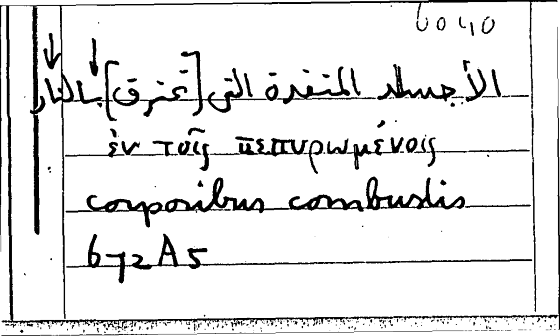 6040
الأجساد المتقدة التي [تحترق] بالنار
ἐν τοῖς πεπυρωμένοις
corporibus combustis
672A5